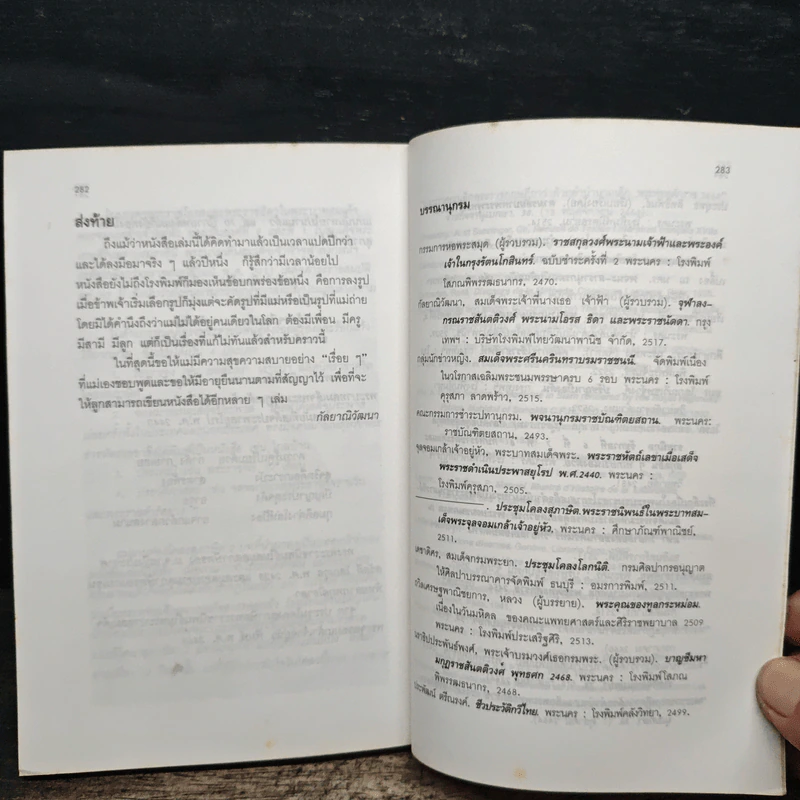 282
ส่งท้าย
ถึงแม้ว่าหนังสือเล่มนี้ได้คิดทำมาแล้วเป็นเวลาแปดปีกว่า
และได้ลงมือมาจริง ๆ แล้วปีหนึ่ง ก็รู้สึกว่ามีเวลาน้อยไป
หนังสือยังไม่ถึงโรงพิมพ์ก็มองเห็นข้อบกพร่องข้อหนึ่ง คือการลงรูป
เมื่อข้าพเจ้าเริ่มเลือกรูปก็มุ่งแต่จะคัดรูปที่มีแม่หรือเป็นรูปที่แม่ถ่าย
โดยมิได้คำนึงถึงว่าแม่ไม่ได้อยู่คนเดียวในโลก ต้องมีเพื่อน มีครู
มีสามี มีลูก แต่ก็เป็นเรื่องที่แก้ไม่ทันแล้วสำหรับคราวนี้
ในที่สุดนี้ขอให้แม่มีความสุขความสบายอย่าง "เรื่อย ๆ"
ที่แม่เองชอบพูดและขอให้มีอายุยืนนานตามที่สัญญาไว้ เพื่อที่จะ
ให้ลูกสามารถเขียนหนังสือได้อีกหลาย ๆ เล่ม
กัลยาณิวัฒนา
283
บรรณานุกรม
กรรมการหอพระสมุด (ผู้รวบรวม). ราชสกุลวงศ์พระนามเจ้าฟ้าและพระองค์
เจ้าในกรุงรัตนโกสินทร์. ฉบับชำระครั้งที่ 2 พระนคร : โรงพิมพ์
โสภณพิพรรฒธนากร, 2470.
กัลยาณิวัฒนา, สมเด็จพระเจ้าพี่นางเธอ เจ้าฟ้า (ผู้รวบรวม). จุฬาลง-
กรณราชสันตติวงศ์ พระนามโอรส ธิดา และพระราชนัดดา. กรุง
เทพฯ : บริษัทโรงพิมพ์ไทยวัฒนาพานิช จำกัด, 2517.
กลุ่มนักข่าวหญิง. สมเด็จพระศรีนครินทราบรมราชชนนี. จัดพิมพ์เนื่อง
ในวโรกาสเฉลิมพระชนมพรรษาครบ 6 รอบ พระนคร : โรงพิมพ์
คุรุสภา ลาดพร้าว, 2515.
คณะกรรมการชำระปทานุกรม. พจนานุกรมราชบัณฑิตยสถาน. พระนคร:
ราชบัณฑิตยสถาน, 2493.
จุลจอมเกล้าเจ้าอยู่หัว, พระบาทสมเด็จพระ. พระราชหัตถ์เลขาเมื่อเสด็จ
พระราชดำเนินประพาสยุโรป พ.ศ.2440. พระนคร :
โรงพิมพ์คุรุสภา, 2505.
. ประชุมโคลงสุภาษิต. พระราชนิพนธ์ในพระบาทสม-
เด็จพระจุลจอมเกล้าเจ้าอยู่หัว. พระนคร : ศึกษาภัณฑ์พาณิชย์,
2511.
เดชาดิศร, สมเด็จกรมพระยา. ประชุมโคลงโลกนิติ. กรมศิลปากรอนุญาต
ให้ศิลปาบรรณาคารจัดพิมพ์ ธนบุรี : อมรการพิมพ์, 2511.
เศรษฐพาณิชยการ, หลวง (ผู้บรรยาย). พระคุณของทูลกระหม่อม.
เนื่องในวันมหิดล ของคณะแพทยศาสตร์และศิริราชพยาบาล 2509
พระนคร : โรงพิมพ์ประเสริฐศิริ, 2513.
พระเจ้าบรมวงศ์เธอกรมพระ. (ผู้รวบรวม). บาญชีมหา
มกุฎราชสันตติวงศ์ พุทธศก 2468. พระนคร : โรงพิมพ์โสภณ
พิพรรฒธนากร, 2468.
ประพัฒน์ ตรีณรงค์. ชีวประวัติกวีไทย. พระนคร : โรงพิมพ์คลังวิทยา, 2499.